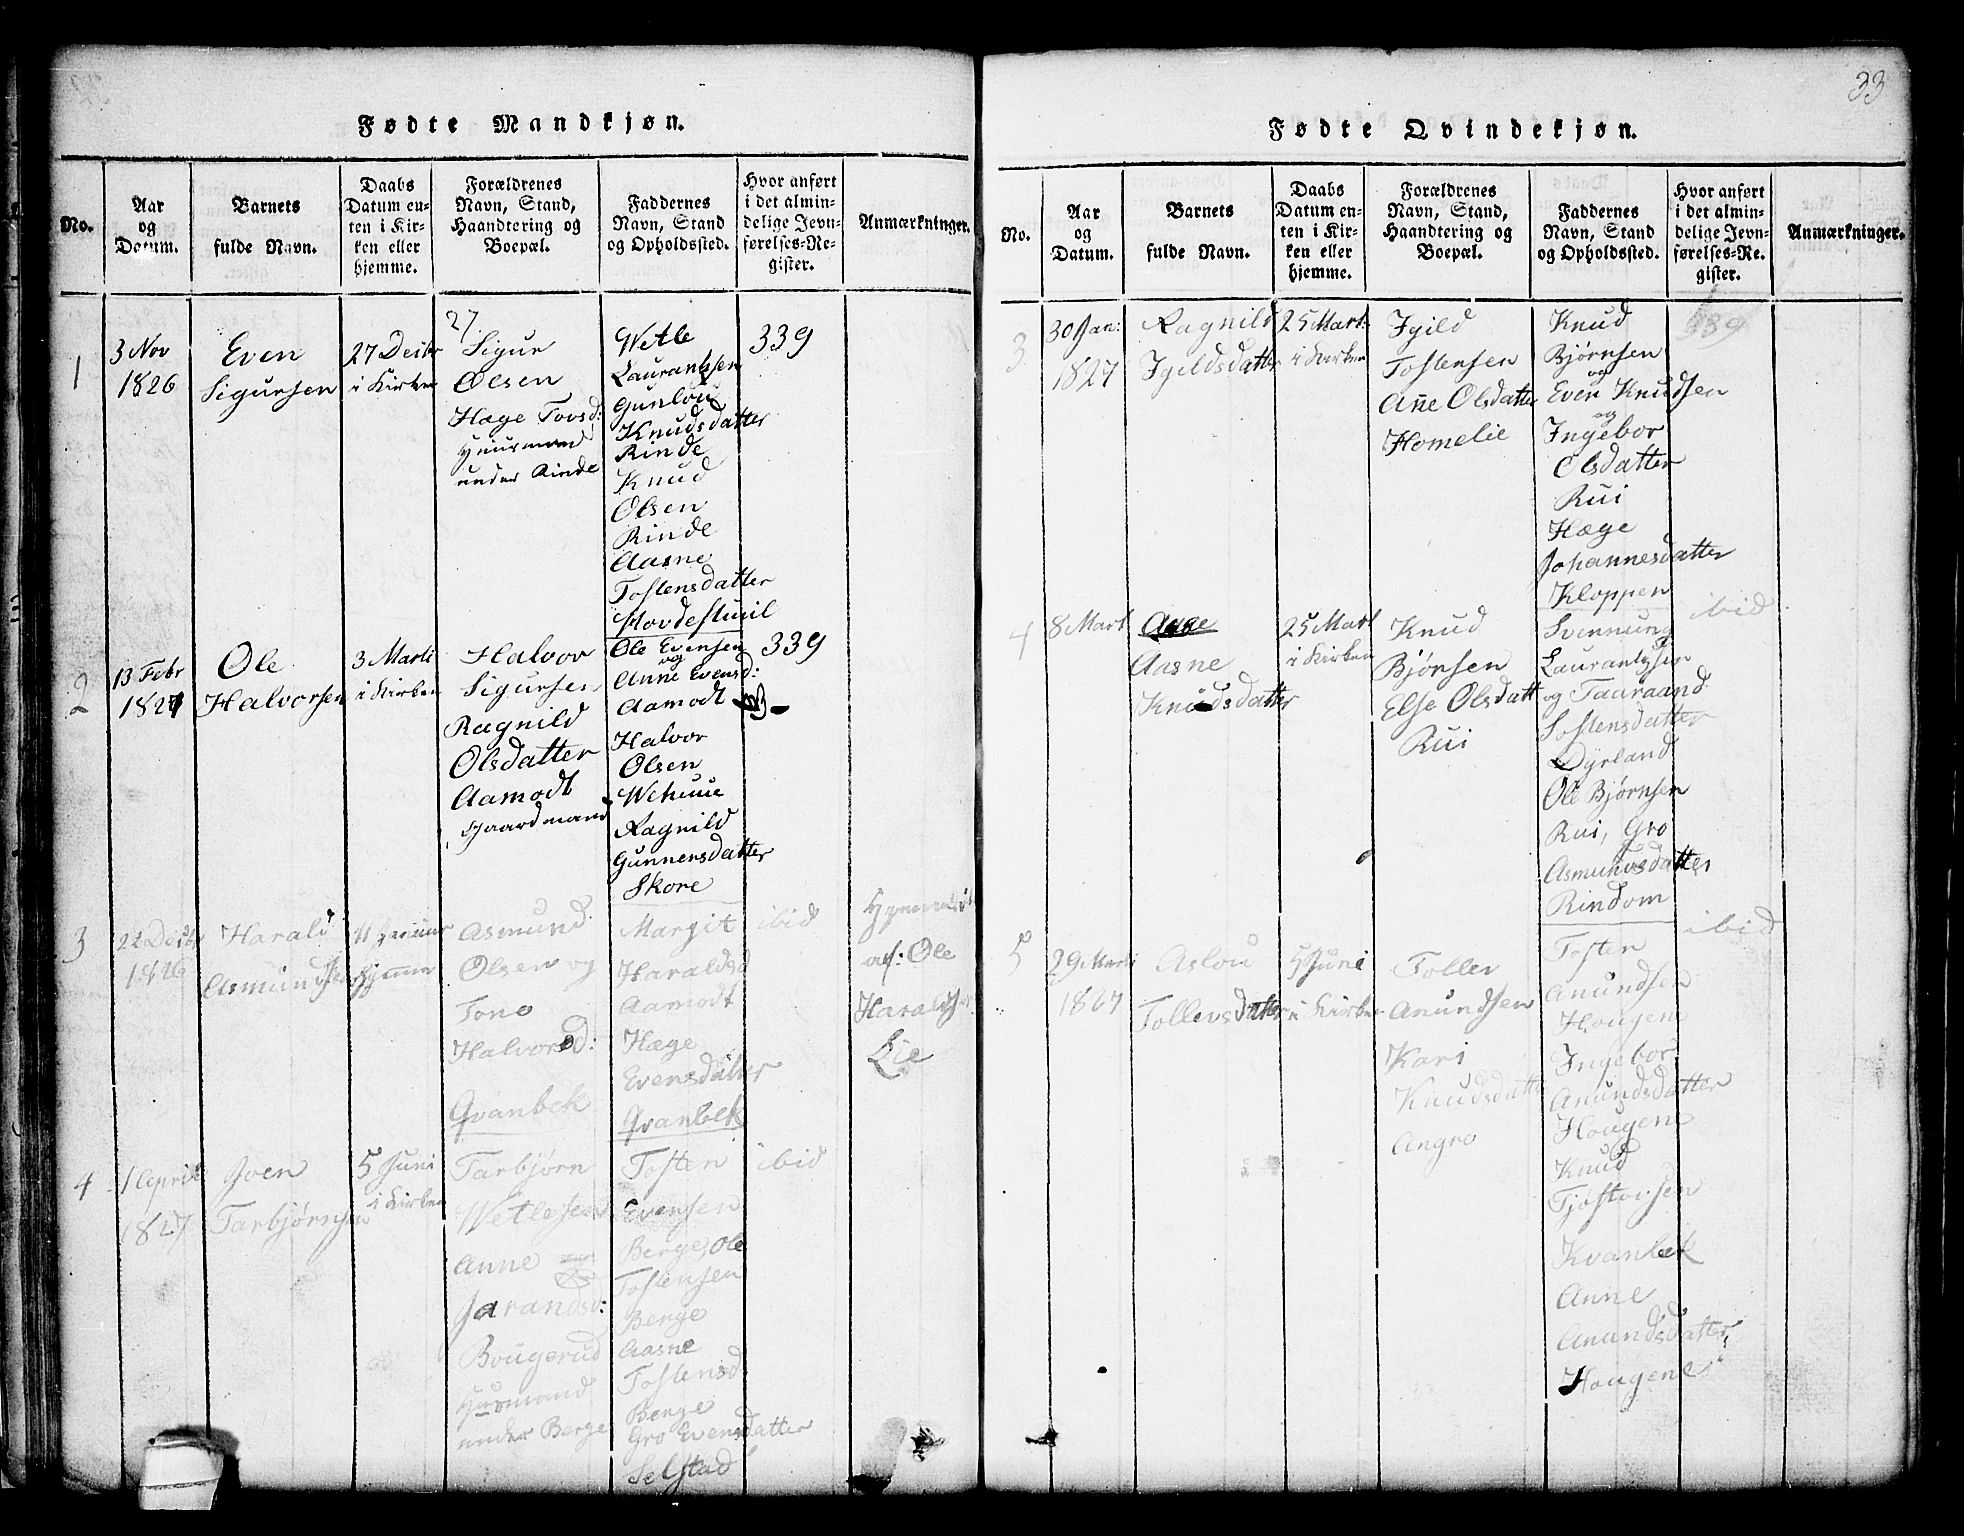 Fødte Mandkjøn.
No.
Aar
og
Datum.
Barnets
fulde Navn.
Daabs
Datum en-
ten i Kir-
ken eller
hjemme.
Forældrenes
Navn, Stand,
Haandtering og
Boepæl.
Faddernes
Navn, Stand
og Opholdssted.
Hvor anført
i det almin-
delige Jevn-
førelses-Re-
gister.
Anmærkninger.
1
3 Nov
1826
Even
Sigursen
27 Decbr
i Kirken
27.
Sigur
Olsen
Hæge Tovsd:
Huusmand
under Rinde
Wetle
Laurantsen
Gunlou
Knudsdatter
Rinde
Knud
Olsen
Rinde
Aasne
Tostensdatter
339
2
13 Febr
1827
Ole
Halvorsen
3 Marti
i Kirken
Halvor
Sigursen
Ragnild
Olsdatter
Aamodt
Gaardmand
Ole Evensen
og
Anne Evensd:
Aamodt
Halvor
Olsen
Ragnild
Gunnersdatter
Skore
339
3
22 Decbr
1826
Harald
Asmundsen
hjemme
Asmund
Olsen og
Tone
Halvorsd:
Qvanbek
Margit
Haraldsd
Aamodt
Hæge
Evensdatter
Qvanbek
ibid
af: Ole
Haraldsen
Lie
4
1 April
1827
Joen
Tarbjørnsen
5 Juni
i Kirken
Tarbjørn
Wetlesen
Anne
Jarandsd:
Bougerud
Huusmand
under Berge
Tosten
Evensen
Berge, Ole
Tostensen
Berge
Aasne
Tostensd
Berge
Gro Evensdatter
Selstad
ibid
33
Fødte Qvindekjøn.
No.
Aar
og
Datum.
Barnets
fulde Navn.
Daabs
Datum en-
ten i Kir-
ken eller
hjemme.
Forældrenes
Navn, Stand,
Haandtering og
Boepæl.
Faddernes
Navn, Stand
og Opholdssted.
Hvor anført
i det almin-
delige Jevn-
førelses-Re-
gister.
Anmærkninger.
3
30 Jan:
1827
Ragnild
Igildsdatter
25 Mart:
i Kirken
Igild
Tostensen
Anne Olsdatter
Homelie
Knud
Bjørnsen
og
Even Knudsen
og
Ingebor
Olsdatter
Rui
Hæge
Johannesdatter
Kloppen
339
4
8 Mart
Aasne
Knudsdatter
25 Mart
i Kirken
Knud
Bjørnsen
Else Olsdatt
Rui
Svennung
Laurantsen
og Taaraand
Tostensdatter
Dyrland
Ole Bjørnsen
Rui, Gro
Asmundsdatter
Rindom
ibid
5
29 Marti
1827
Aslou
Tollevsdatter
5 Juni
i Kirken
Tollev
Anundsen
Kari
Knudsdatt
Angro
Tosten
Anundsen
Hougene
Ingebor
Anundsdatter
Hougene
Knud
Tjostovsen
Kvanbek
Anne
Anundsdatter
Hougene
ibid